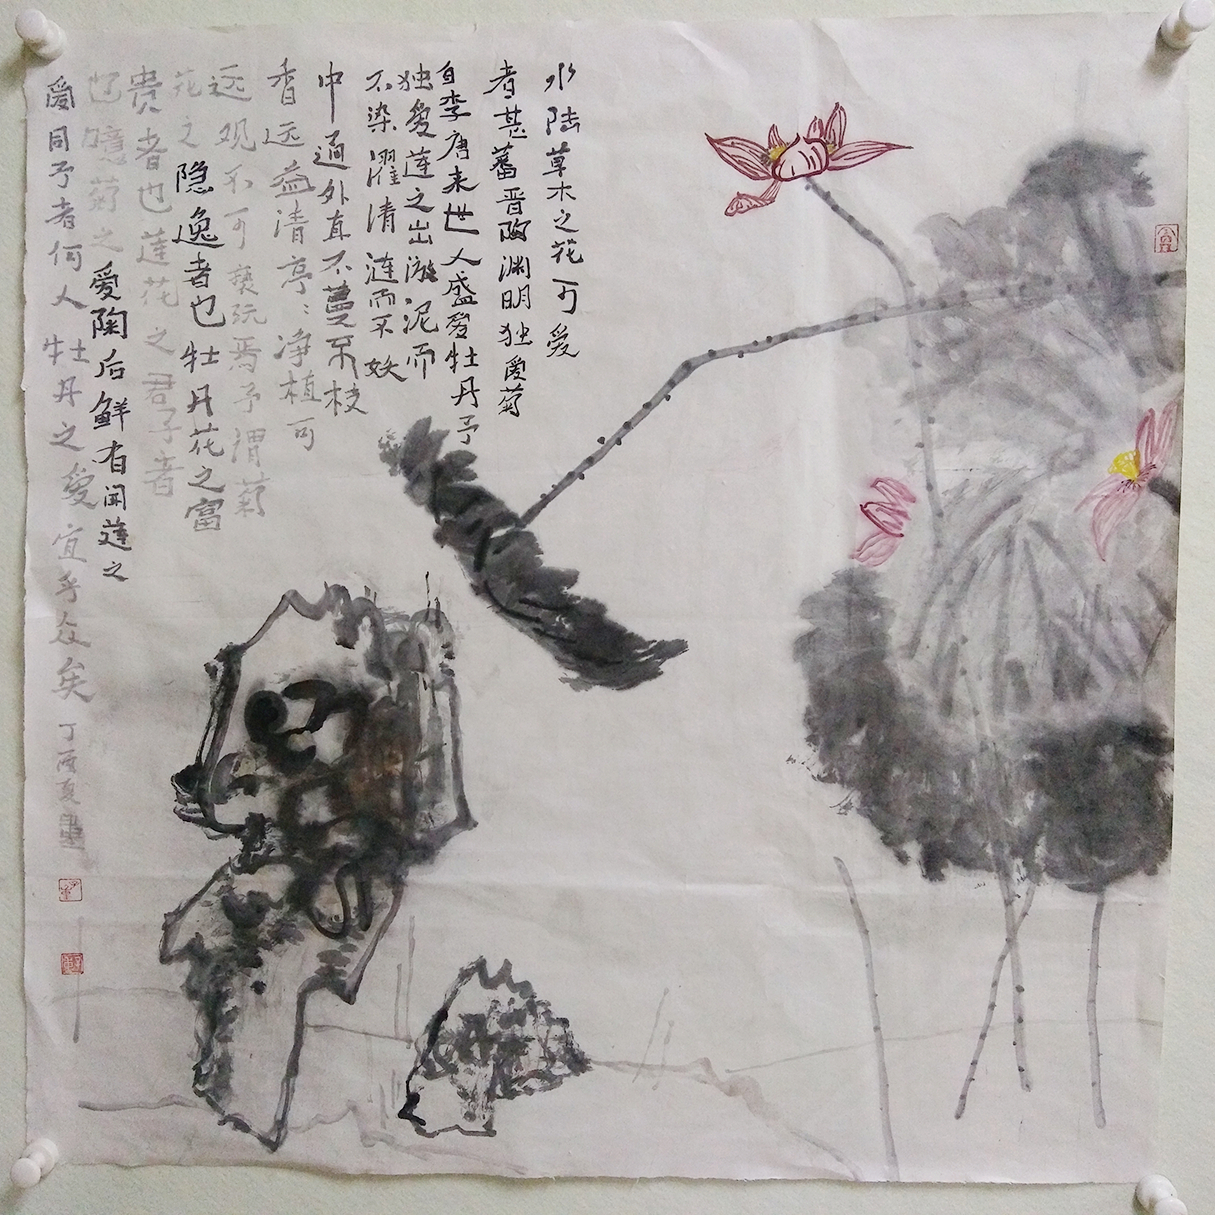 水陆草木之花可爱
者甚蕃晋陶渊明独爱菊
自李唐来世人盛爱牡丹予
独爱莲之出淤泥而
不染濯清涟而不妖
中通外直不蔓不枝
香远益清亭〻净植可
远观不可亵玩焉予谓菊
花之隐逸者也牡丹花之富
贵者也莲花之君子者
也噫菊之爱陶后鲜有闻莲之
爱同予者何人牡丹之爱宜乎众矣丁酉夏